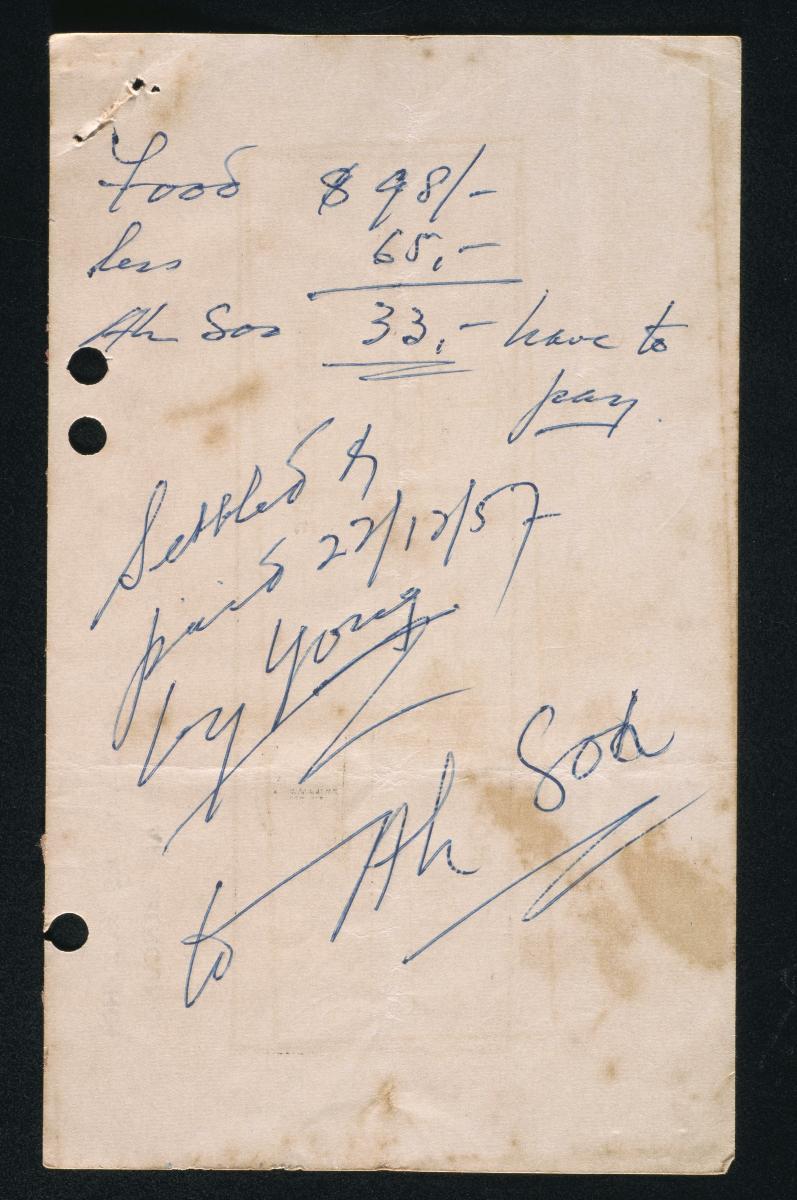 Food $ 98/-
less 65,-
Ah Soo 33,- have to
pay.
Settled &
paid 22/12/57
by Yong
to Ah Soh